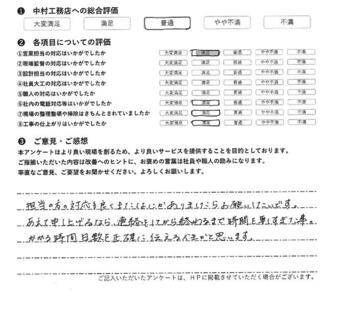 ❶ 中村工務店への総合評価
大変満足 満足 普通 やや不満 不満
❷ 各項目についての評価
①営業担当の対応はいかがでしたか 大変満足 満足 普通 やや不満 不満
②現場監督の対応はいかがでしたか 大変満足 満足 普通 やや不満 不満
③設計担当の対応はいかがでしたか 大変満足 満足 普通 やや不満 不満
④社員大工の対応はいかがでしたか 大変満足 満足 普通 やや不満 不満
⑤職人の対応はいかがでしたか 大変満足 満足 普通 やや不満 不満
⑥社内の電話対応等はいかがでしたか 大変満足 満足 普通 やや不満 不満
⑦現場の整理整頓や掃除はきちんとされていましたか 大変満足 満足 普通 やや不満 不満
⑧工事の仕上がりはいかがでしたか 大変満足 満足 普通 やや不満 不満
❸ ご意見・ご感想
本アンケートはより良い現場を創るため、より良いサービスを提供することを目的としております。
ご指摘いただいた内容は改善へのヒントに、お褒めの言葉は社員や職人の励みになります。
率直なご意見、ご要望をお聞かせください。よろしくお願いします。
担当の方の対応も良くまたなにかありましたらお願いしたいです。
あえて申し上げるなら、連絡をしてから終わるまで時間を要しすぎた事。
かかる時間日数を正確に伝えるべきかと思います。
ご記入いただいたアンケートは、HPに掲載させていただく場合がございます。